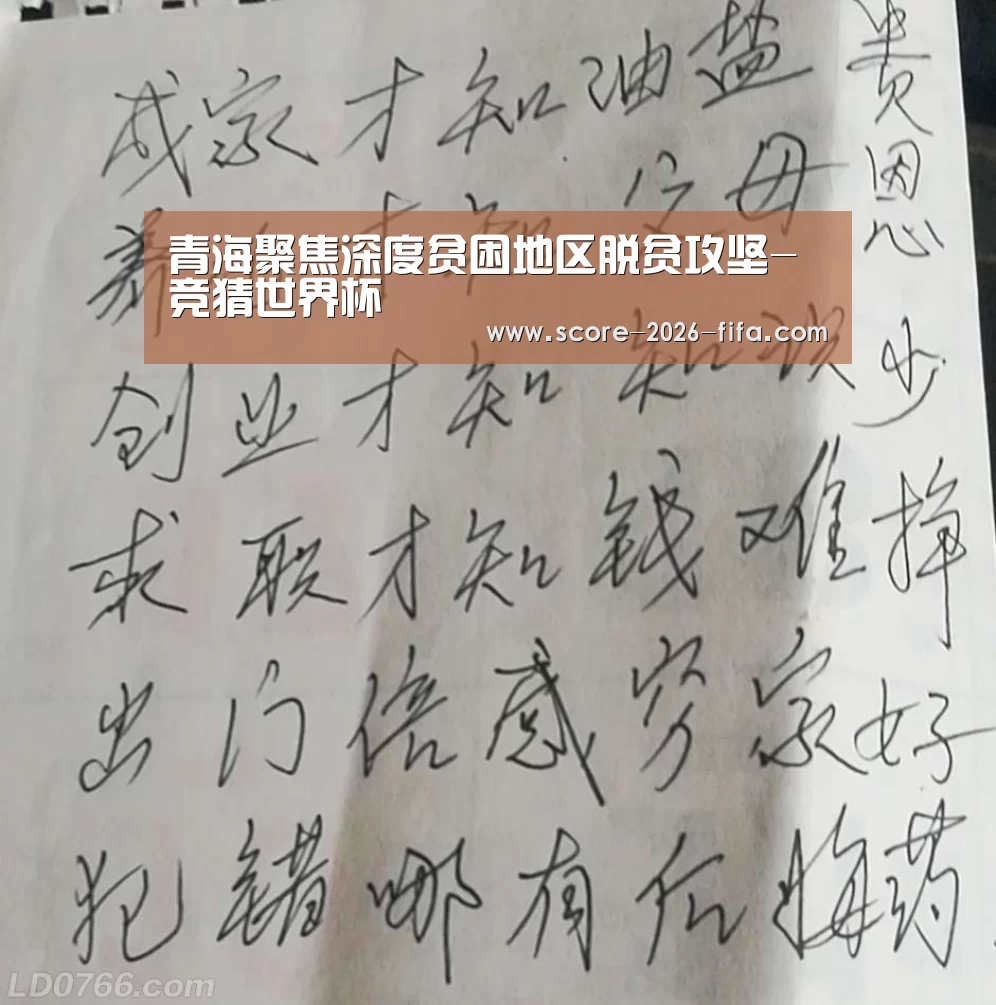 成家才知油盐贵
养 才知父母恩
青海聚焦深度贫困地区脱贫攻坚-
竞猜世界杯
www.score-2026-fifa.com
创业才知知识少
求职才知钱难挣
出门倍感穷家好
犯错哪有后悔药
LD0766.com